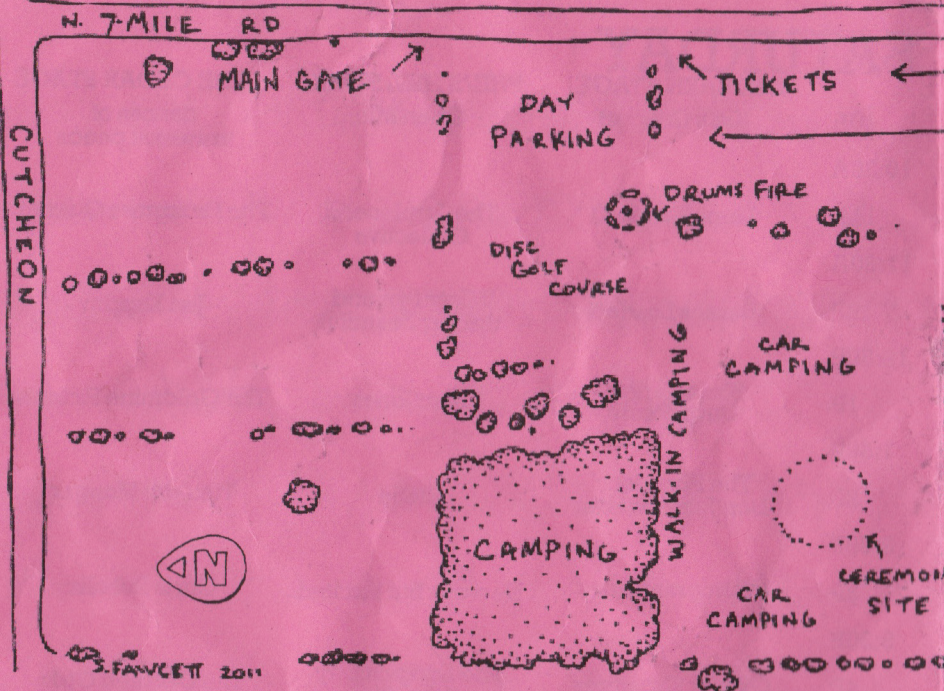 N. 7-MILE RD
MAIN GATE
TICKETS
DAY
PARKING
CUTCHEON
DRUMS FIRE
DISC
GOLF
COURSE
CAR
CAMPING
WALK-IN CAMPING
CAMPING
N
CEREMON
SITE
CAR
CAMPING
S. FAWCETT 2011